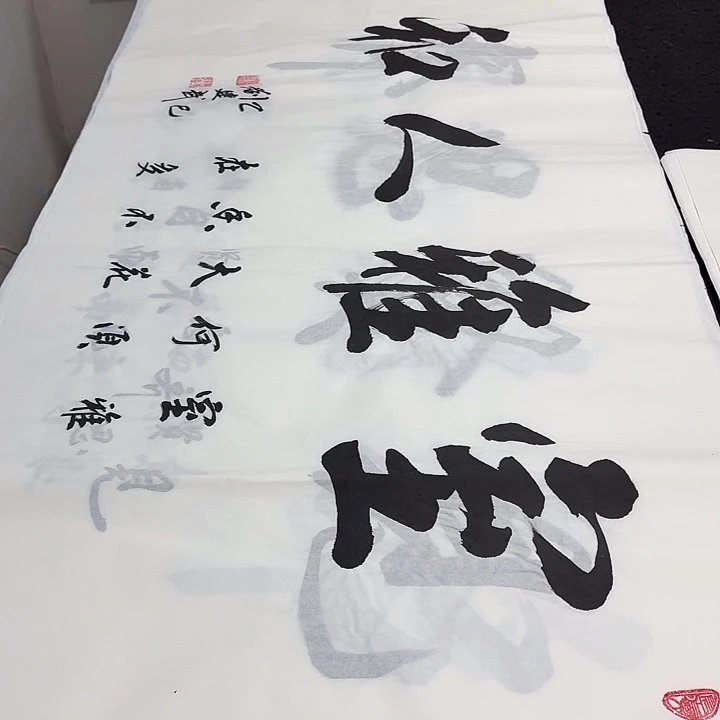 室雅人和
室雅
何須
大花
香不
在多
乙巳
劉